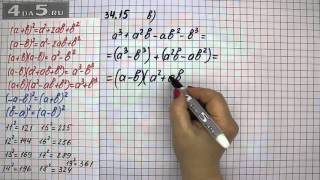 4DA5.RU
34.15 в)
(a+b)²=a²+2ab+b²
(a-b)²=a²-2ab+b²
(a-b)(a+b)=a²-b²
(a-b)(a²+ab+b²)=a³-b³
(a+b)(a²-ab+b²)=a³+b³
(-a-b)²=(a+b)²
(b-a)²=(a-b)²
11²=121 15²=225
12²=144 16²=256
13²=169 17²=289
14²=196 18²=324
19²=361
a³+a²b-ab²-b³=
=(a³-b³)+(a²b-ab²)=
=(a-b)(a²+ab